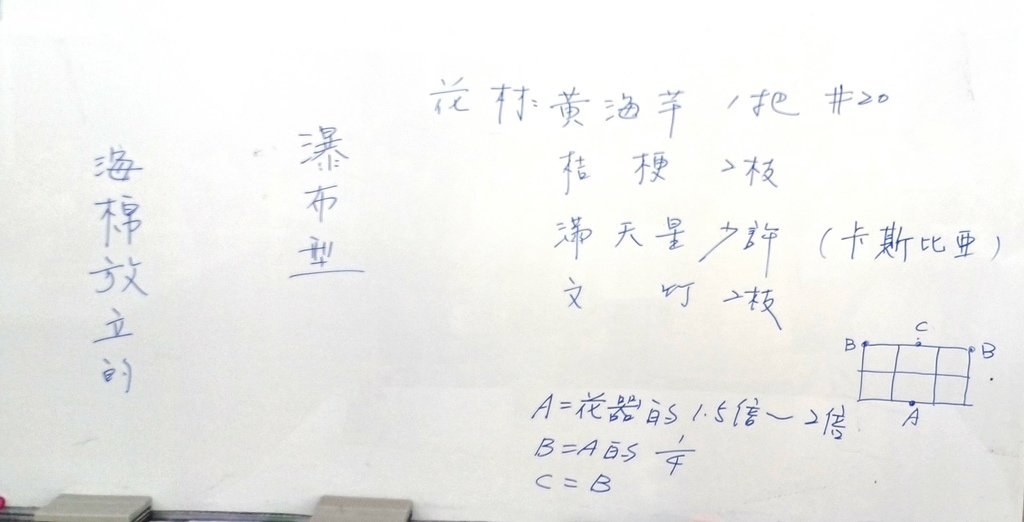 海棉放立的
瀑布型
花材:黃海芋 1把 #20
桔梗 2枝
滿天星少許(卡斯比亜)
文竹 2枝
B C B
A
A=花器的1.5倍~2倍
B=A的1/4
C=B